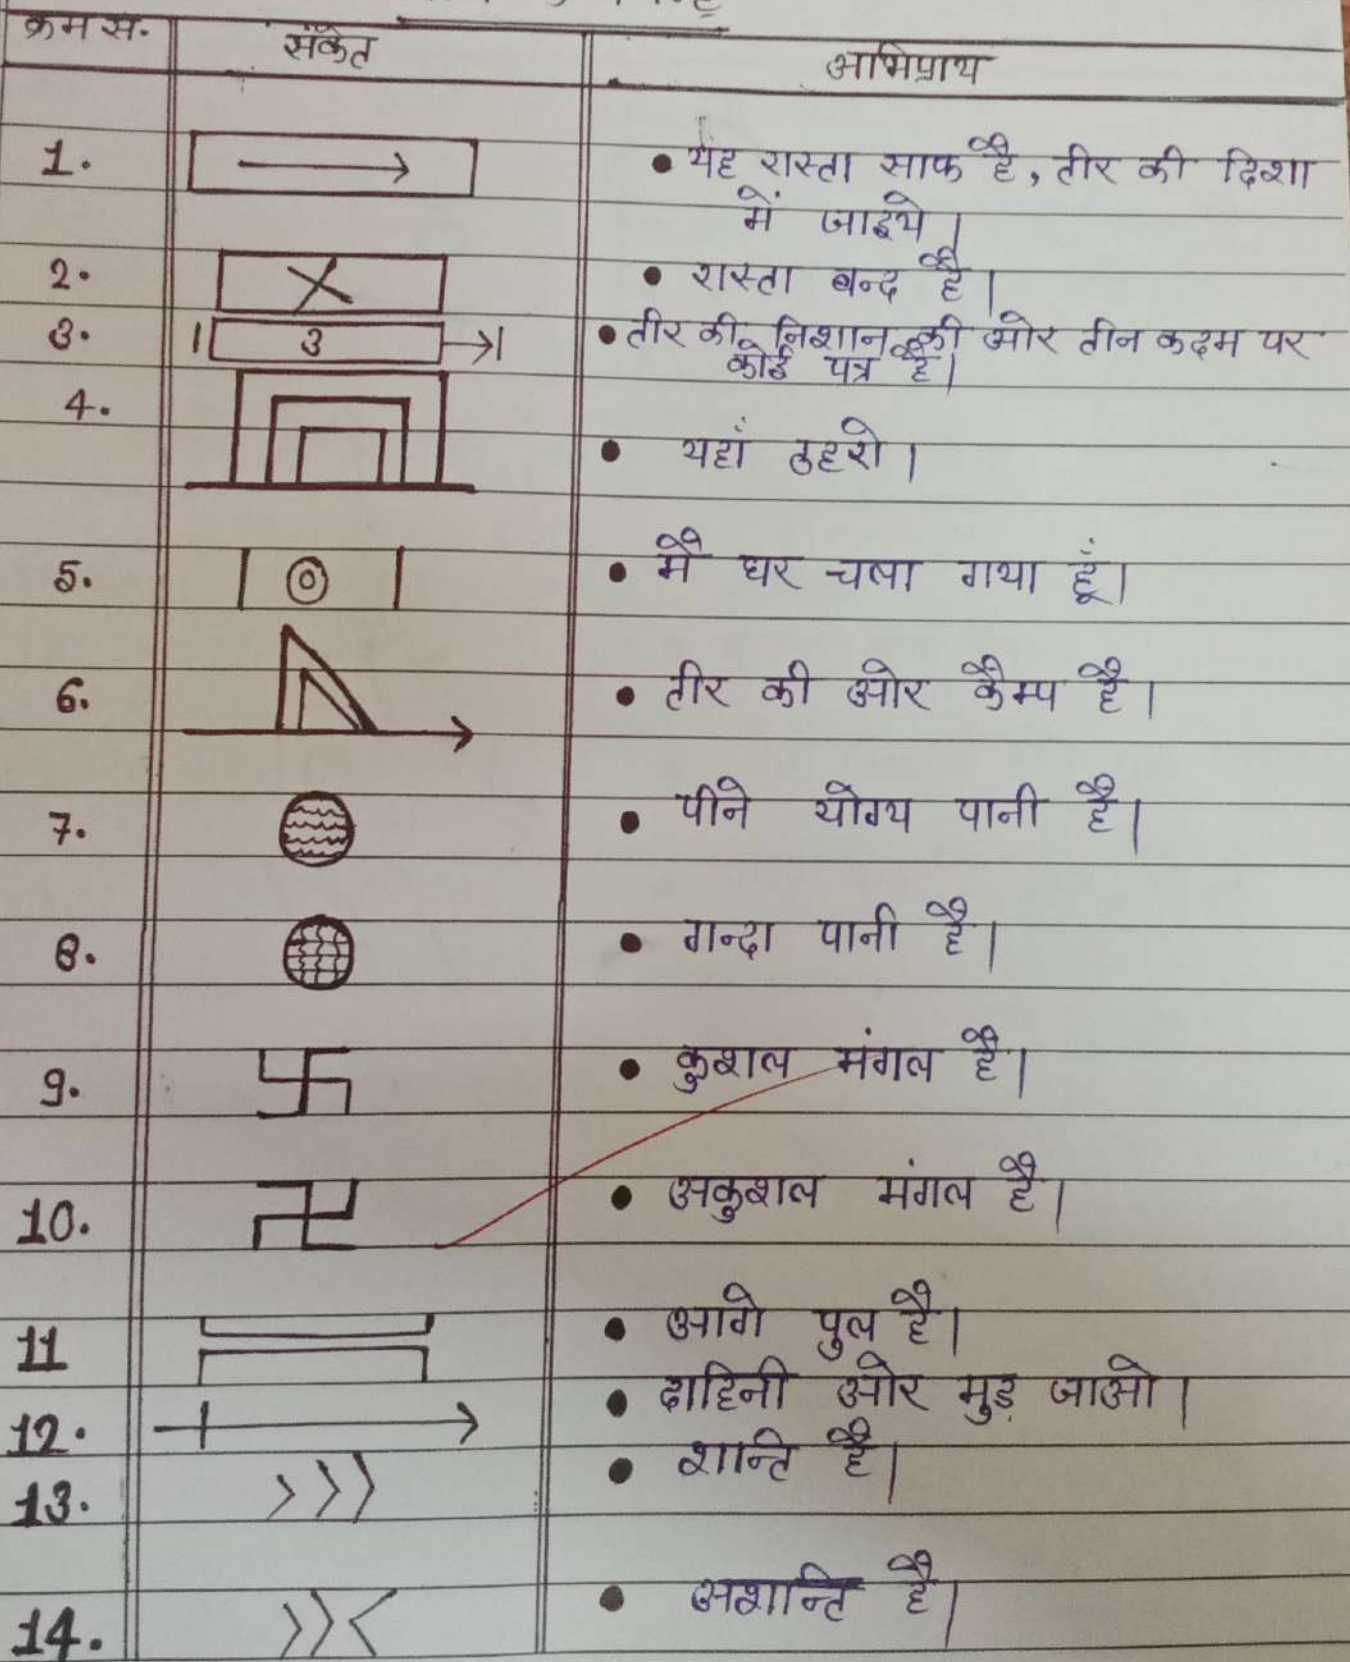 क्रम स. संकेत अभिप्राय
1. • यह रास्ता साफ है, तीर की दिशा
में जाइये।
2. • रास्ता बन्द है।
3. 3 • तीर की निशान की ओर तीन कदम पर
कोई पत्र है।
4.
• यहाँ ठहरो।
5. • मै घर चला गया हूँ।
6. • तीर की ओर कैम्प है।
7. • पीने योग्य पानी है।
8. • गन्दा पानी है।
9. • कुशल मंगल है।
10. • अकुशल मंगल है।
11 • आगे पुल है।
12. • दाहिनी ओर मुड़ जाओ।
13. • शान्ति है।
14. • अशान्ति है।